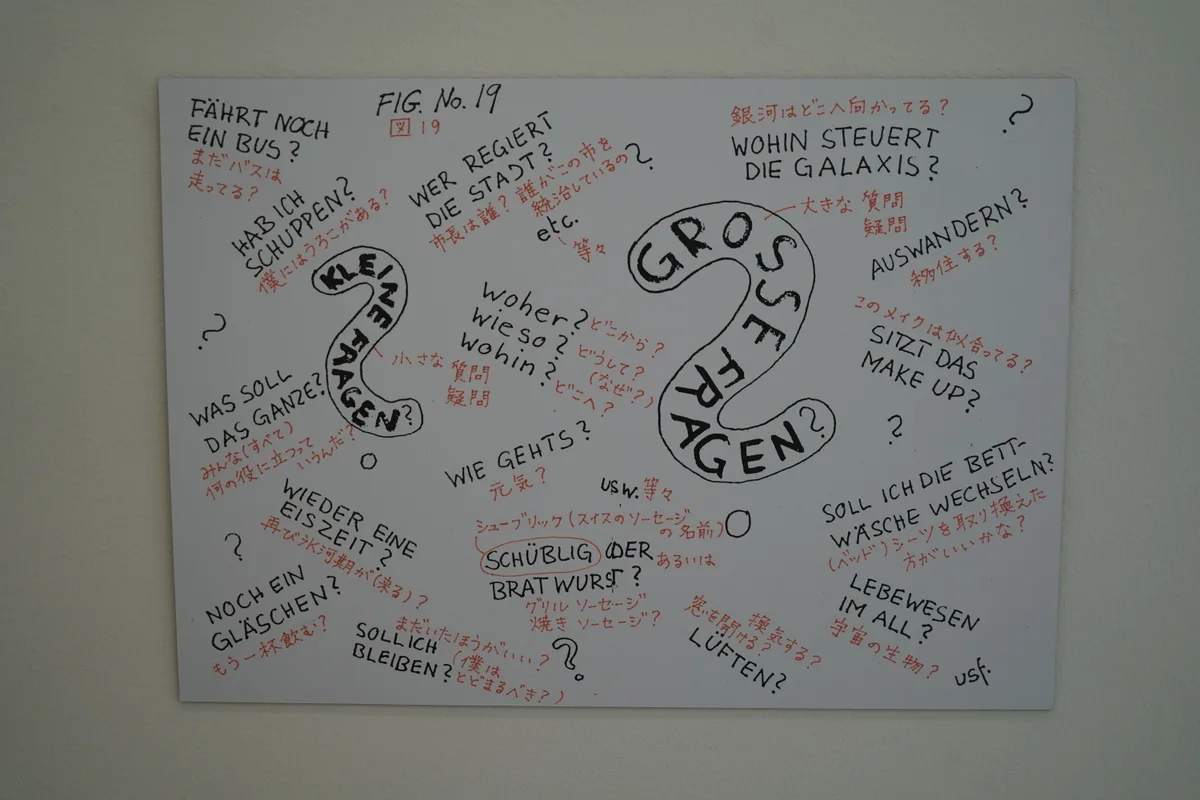 FIG. No. 19
図 19
FÄHRT NOCH
EIN BUS?
まだバスは
走ってる?
HAB ICH
SCHUPPEN?
僕にはうろこがある?
WER REGIERT
DIE STADT?
市長は誰? 誰がこの市を
統治しているの?
etc.
等々
銀河はどこへ向かってる?
WOHIN STEUERT
DIE GALAXIS?
?
KLEINE FRAGEN?
小さな 質問
疑問
GROSSE FRAGEN?
大きな 質問
疑問
AUSWANDERN?
移住する?
woher? どこから?
wieso? どうして?
(なぜ?)
wohin? どこへ?
このメイクは似合ってる?
SITZT DAS
MAKE UP?
?
?
WAS SOLL
DAS GANZE?
みんな(すべて)
何の役に立つって
いうんだ?
WIE GEHTS?
元気?
usw. 等々
SOLL ICH DIE BETT-
WÄSCHE WECHSELN?
(ベッド)シーツを取り換えた
方がいいかな?
WIEDER EINE
EISZEIT?
再び氷河期が(来る)?
?
シューブリック(スイスのソーセージ
の名前)
SCHÜBLIG ODER あるいは
BRATWURST?
グリル ソーセージ
焼き ソーセージ?
NOCH EIN
GLÄSCHEN?
もう一杯飲む?
まだいたほうがいい?
SOLL ICH
BLEIBEN?
(僕は
とどまるべき?)
?
窓を開ける? 換気する?
LÜFTEN?
LEBEWESEN
IM ALL?
宇宙の生物?
usf.